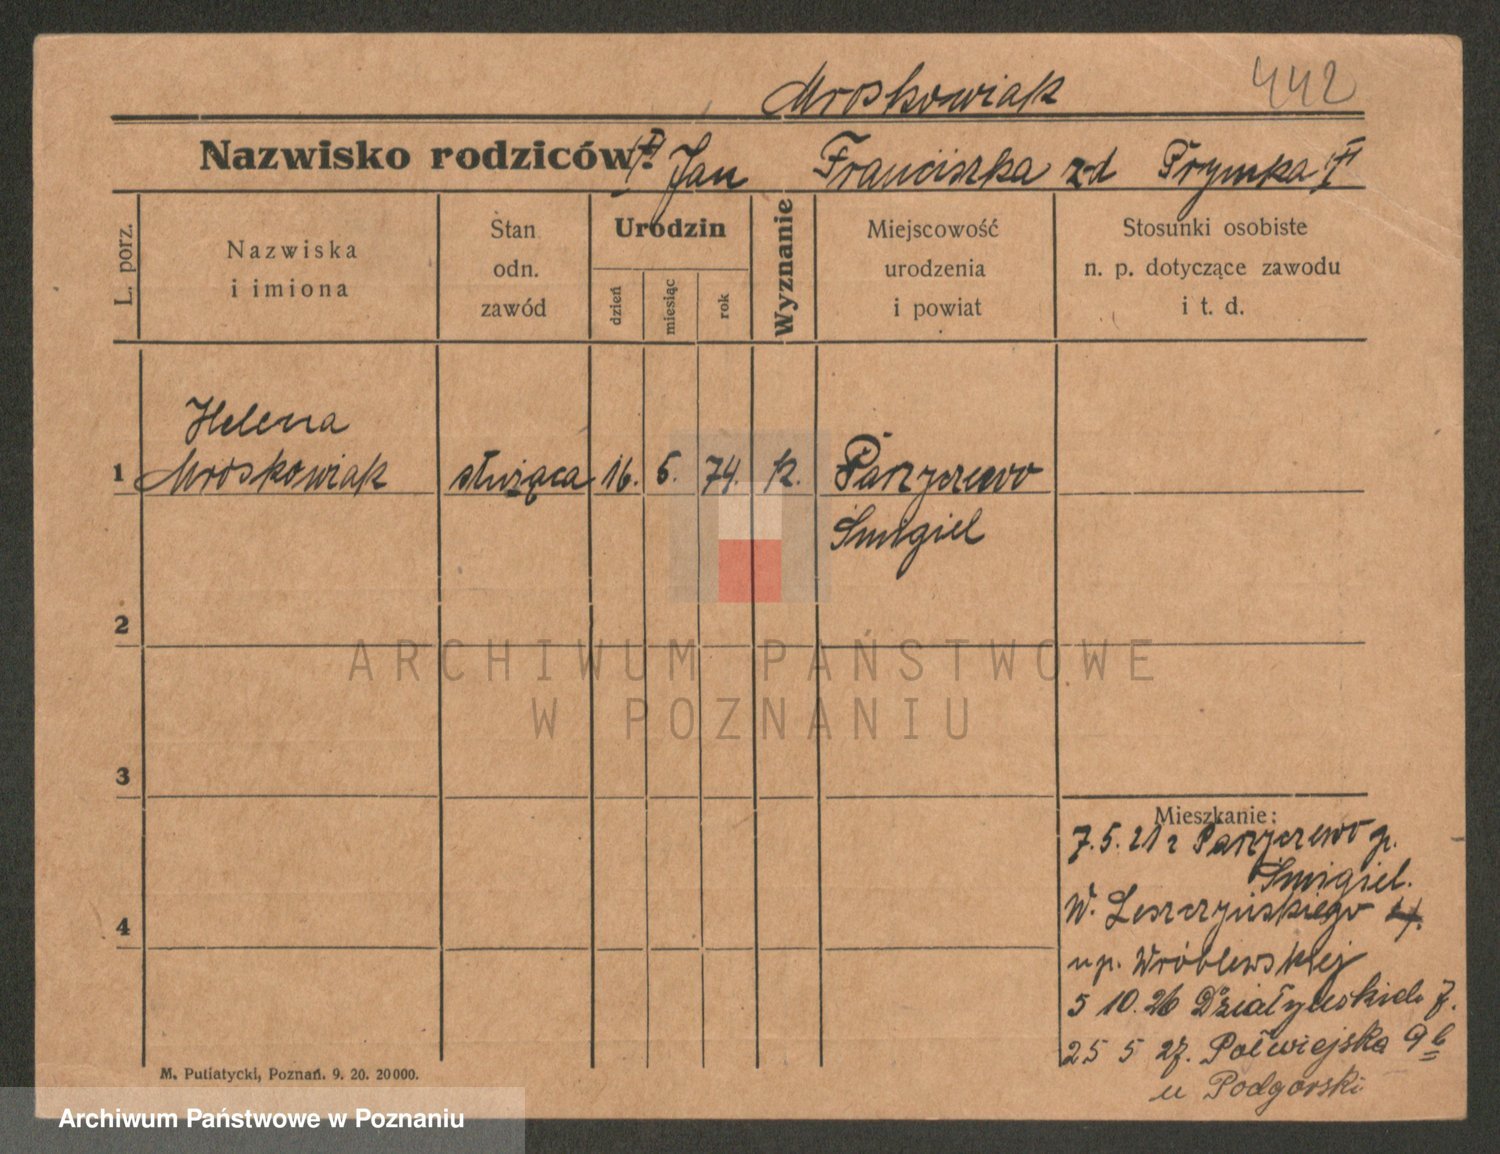 Mroskowiak 442
Nazwisko rodziców: Jan Franciszka z d Prymka
L. porz.
Nazwiska
i imiona
Stan
odn.
zawód
Urodzin
dzień
miesiąc
rok
Wyznanie
Miejscowość
urodzenia
i powiat
Stosunki osobiste
n. p. dotyczące zawodu
i t. d.
Helena
1 Mroskowiak służąca 16. 5. 74. k. Parzyczewo
Śmigiel
2
ARCHIWUM PAŃSTWOWE
W POZNANIU
3
Mieszkanie:
7.5.21 z Parzyczewo p.
Śmigiel.
4
W. Leszczyńskiego
u p. Wróblewskiej
5 10. 26 Działyńskich 7.
25 5 27. Półwiejska 9 b
u Podgórski
M. Putiatycki, Poznań. 9. 20. 20000.
Archiwum Państwowe w Poznaniu